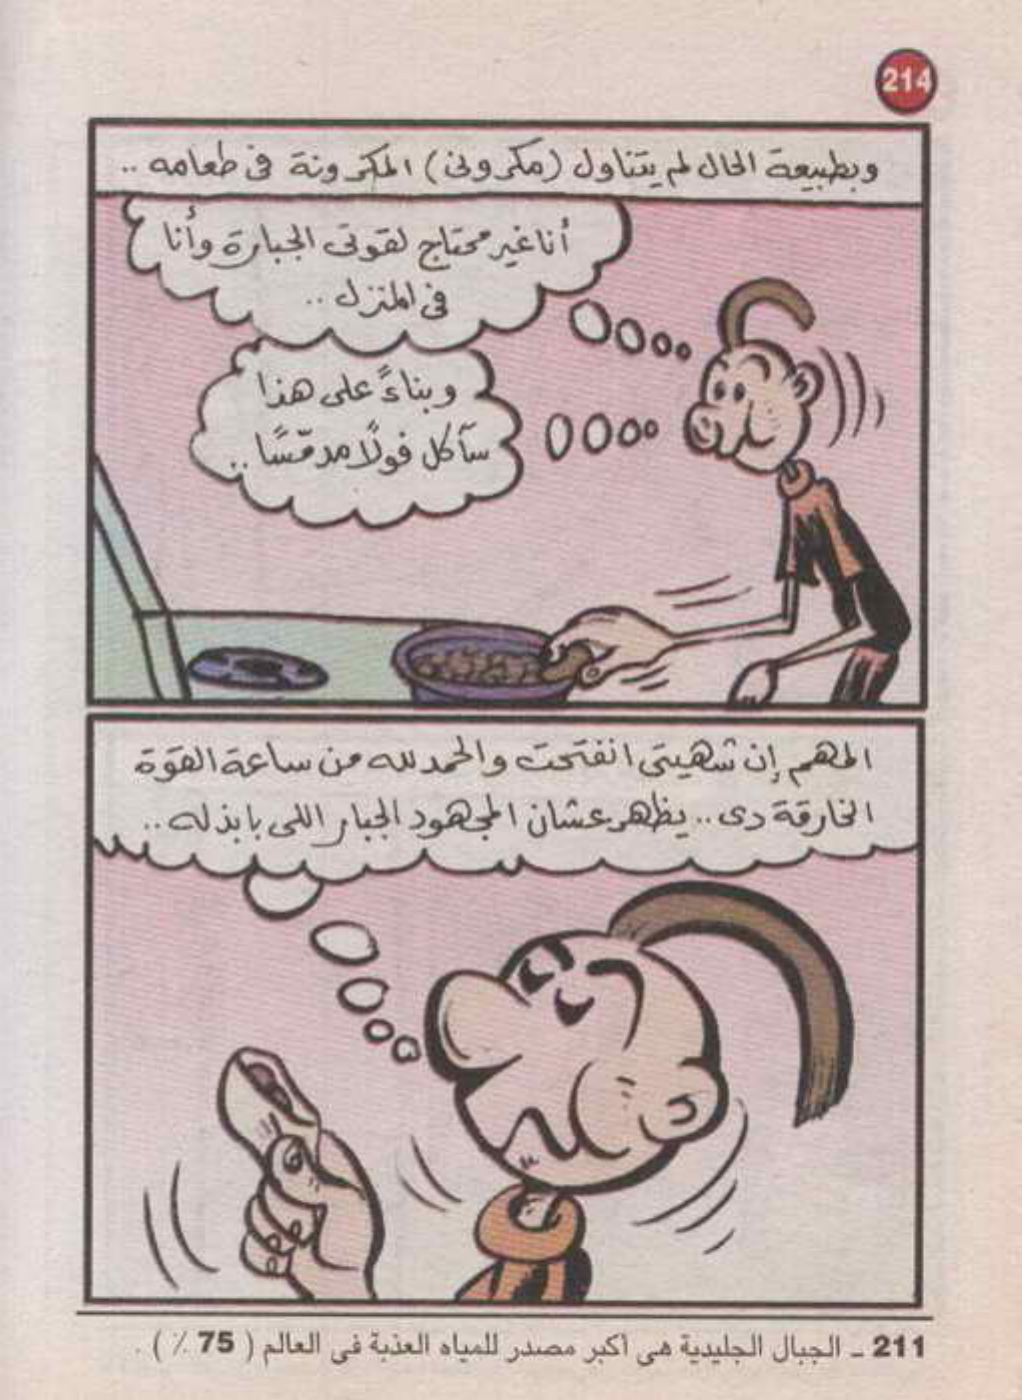 214
وبطبيعة الحال لم يتناول (مكرونى) المكرونة فى طعامه ..
أنا غير محتاج لقوتى الجبارة وأنا
فى المنزل ..
وبناءً على هذا
سآكل فولًا مدمّسًا ..
المهم إن شهيتى انفتحت والحمد لله من ساعة القوّة
الخارقة دى .. يظهر عشان المجهود الجبار اللى بابذله ..
211 ـ الجبال الجليدية هى أكبر مصدر للمياه العذبة فى العالم ( 75 ٪ ) .